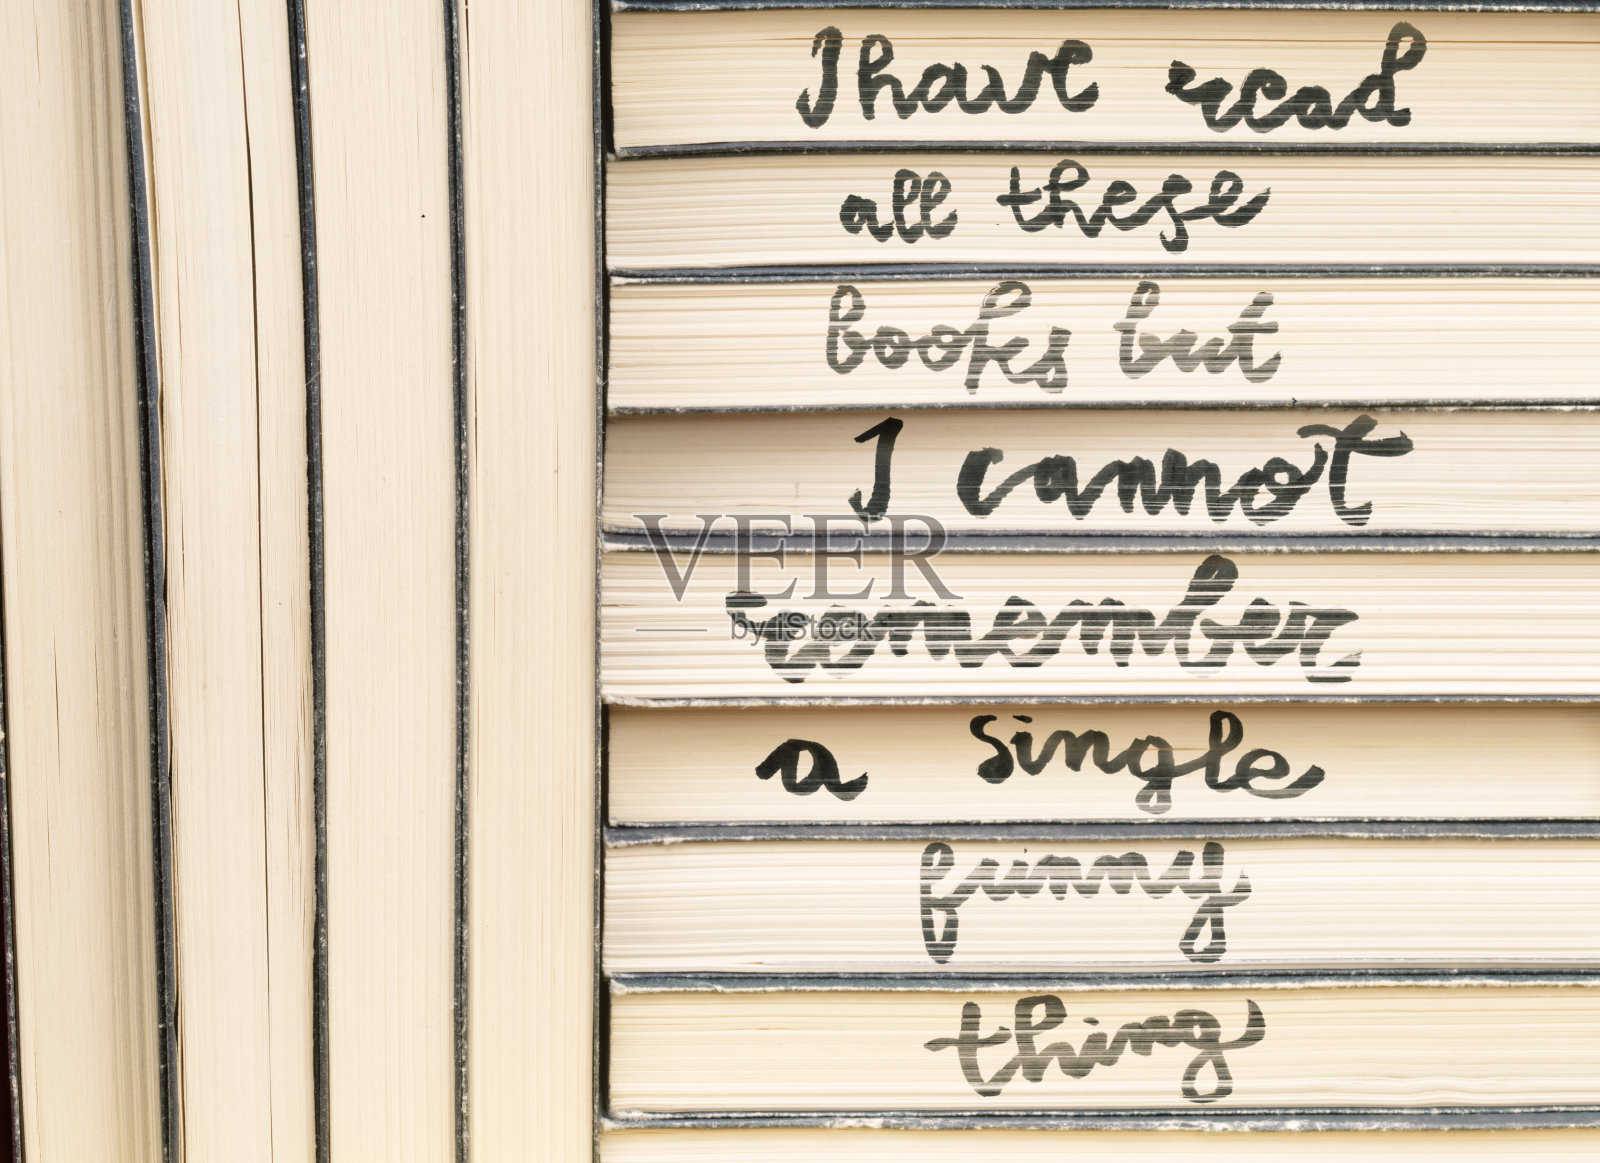 I have read
all these
books but
I cannot
VEER
by iStock
remember
a single
funny
thing